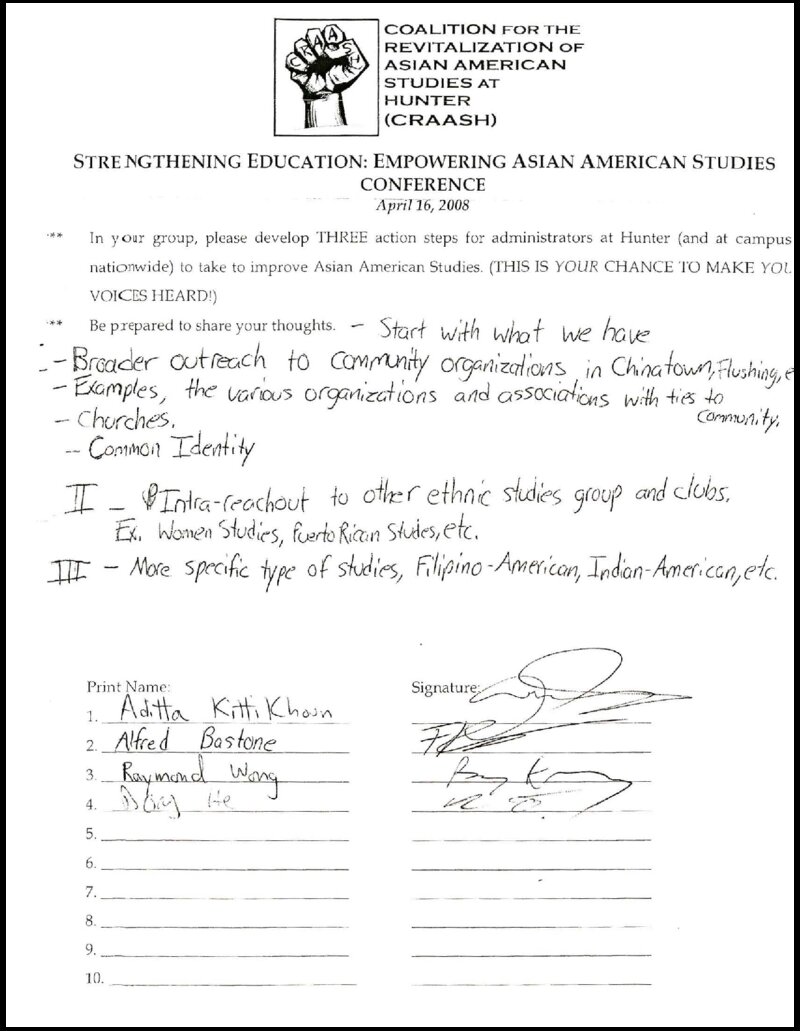 CRAASH
COALITION FOR THE
REVITALIZATION OF
ASIAN AMERICAN
STUDIES AT
HUNTER
(CRAASH)
STRENGTHENING EDUCATION: EMPOWERING ASIAN AMERICAN STUDIES
CONFERENCE
April 16, 2008
** In your group, please develop THREE action steps for administrators at Hunter (and at campus
nationwide) to take to improve Asian American Studies. (THIS IS YOUR CHANCE TO MAKE YOU
VOICES HEARD!)
** Be prepared to share your thoughts. - Start with what we have
- Broader outreach to community organizations in Chinatown, Flushing, e
- Examples, the various organizations and associations with ties to
community.
- Churches.
-- Common Identity
II - Intra-reachout to other ethnic studies group and clubs.
Ex. Women Studies, Puerto Rican Studies, etc.
III - More specific type of studies, Filipino-American, Indian-American, etc.
Print Name: Signature:
1. Aditta Kittikhoun
2. Alfred Bastone
3. Raymond Wong
4. He
5.
6.
7.
8.
9.
10.